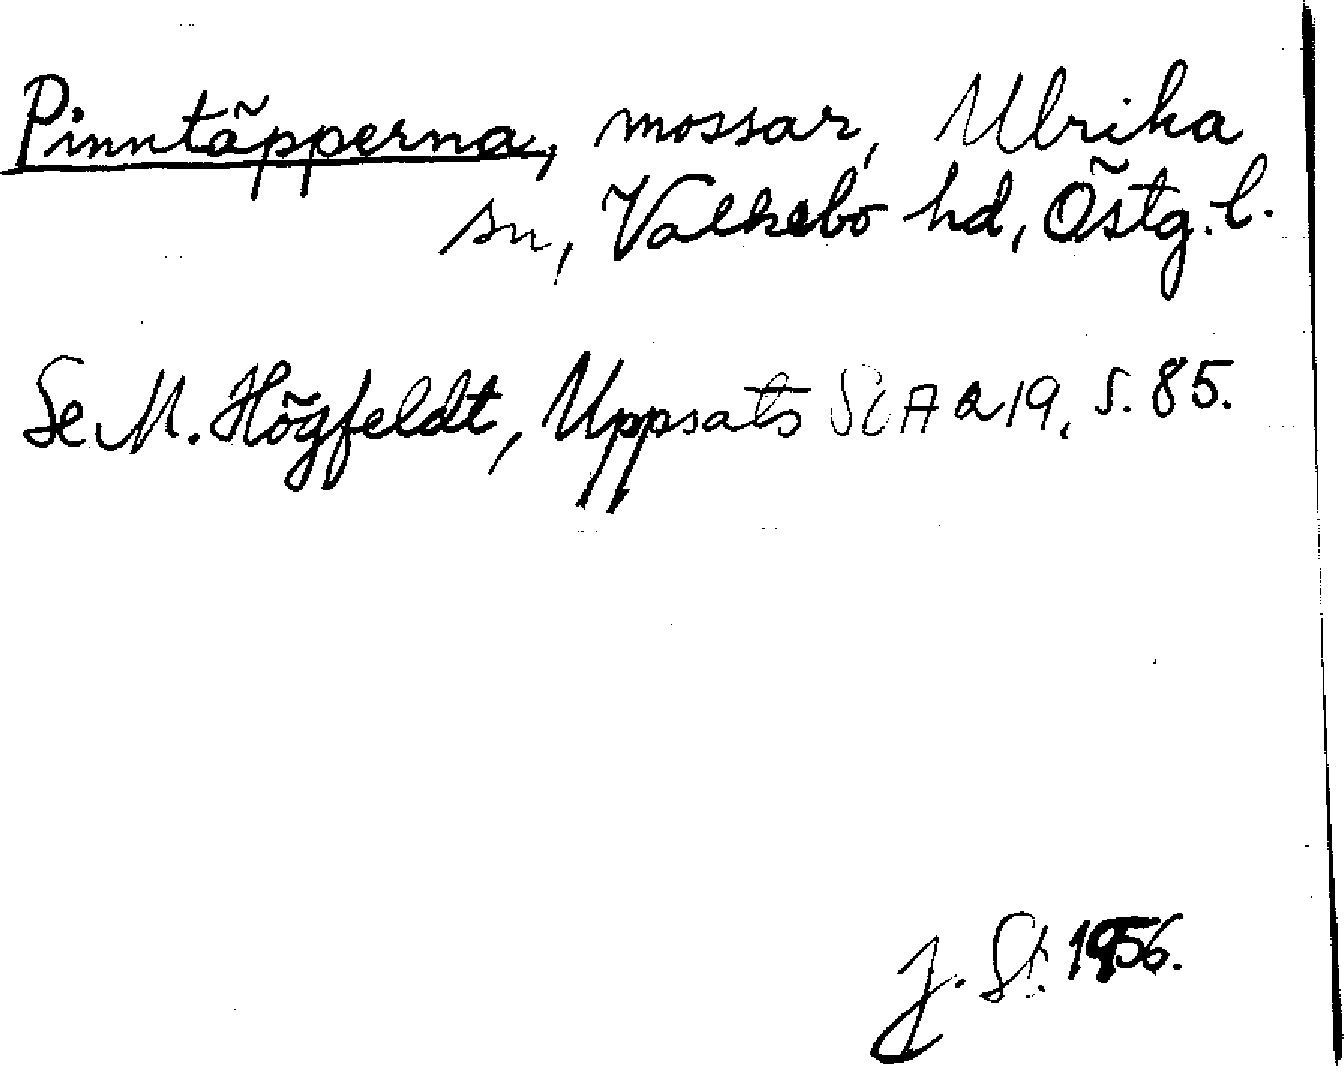 Pinntäpperna, mossar, Ulrika
sn, Valkebo hd, Östg. l.
Se M. Högfeldt, Uppsats SOA 219, s. 85.
J. St. 1956.